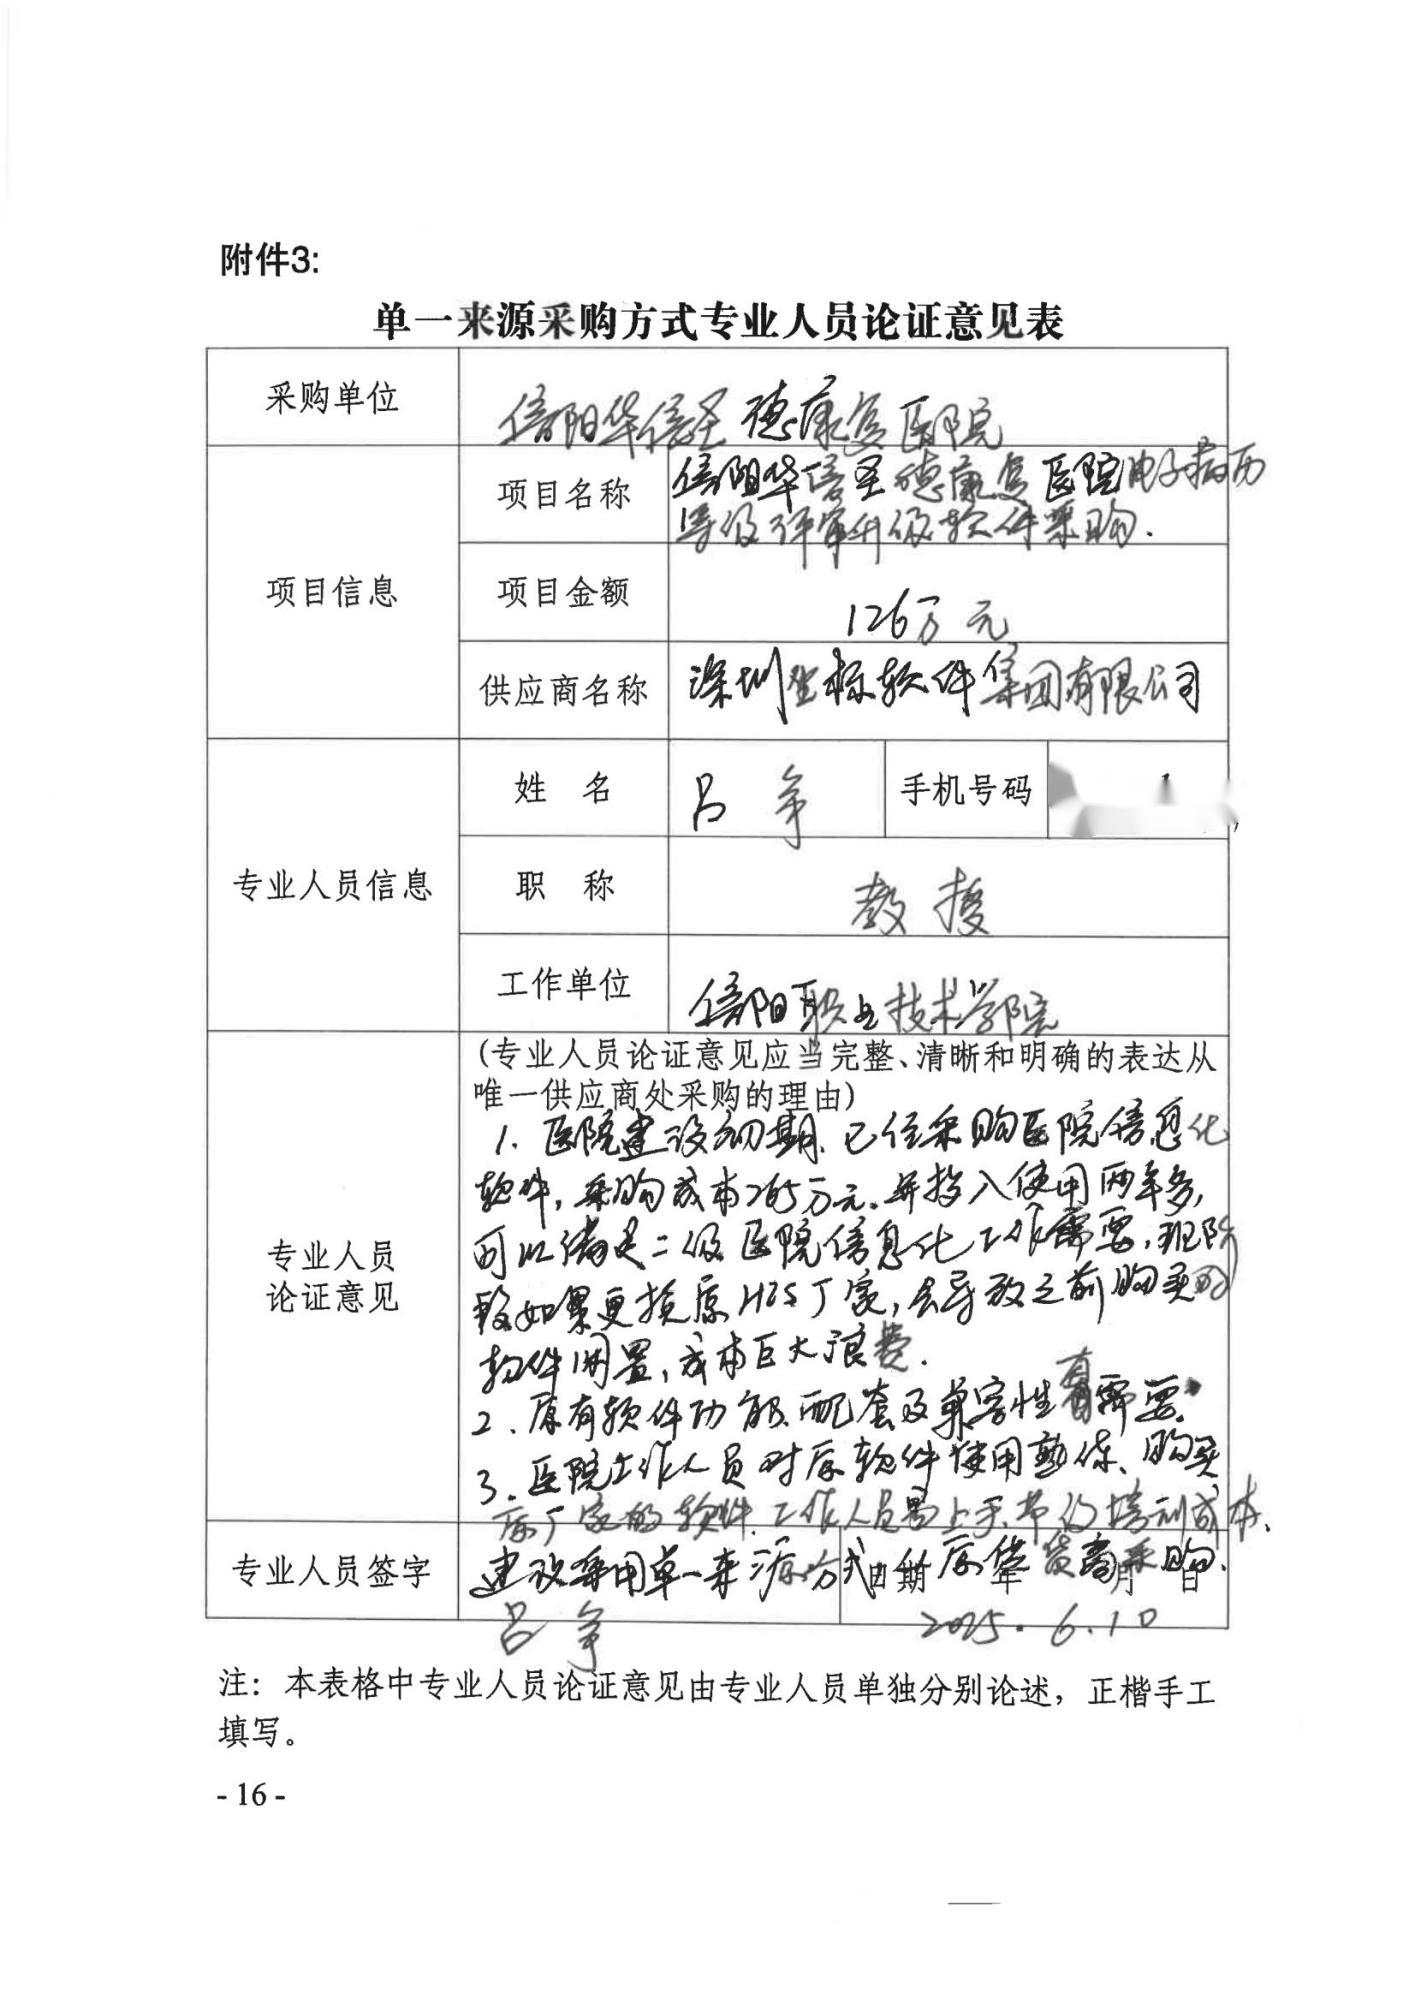 附件3:
单一来源采购方式专业人员论证意见表
采购单位
信阳华信圣德康复医院
项目信息
项目名称
信阳华信圣德康复医院电子病历
等级评审升级软件采购.
项目金额
126万元
供应商名称
深圳坐标软件集团有限公司
专业人员信息
姓 名
吕争
手机号码
职 称
教授
工作单位
信阳职业技术学院
专业人员
论证意见
(专业人员论证意见应当完整、清晰和明确的表达从
唯一供应商处采购的理由)
1. 医院建设初期, 已经采购医院信息化
软件, 采购成本265万元. 并投入使用两年多,
可以满足二级医院信息化工作需要, 现阶
段如果更换原HIS厂家, 会导致之前购买的
软件闲置, 成本巨大浪费.
2. 原有软件功能、配套及兼容性有需要.
3. 医院工作人员对原软件使用熟练、购买
原厂家的软件, 工作人员易上手、节约培训成本、
建议采用单一来源方式从原供货商采购.
专业人员签字
吕争
日期 年 月 日
2025.6.10
注：本表格中专业人员论证意见由专业人员单独分别论述，正楷手工
填写。
- 16 -